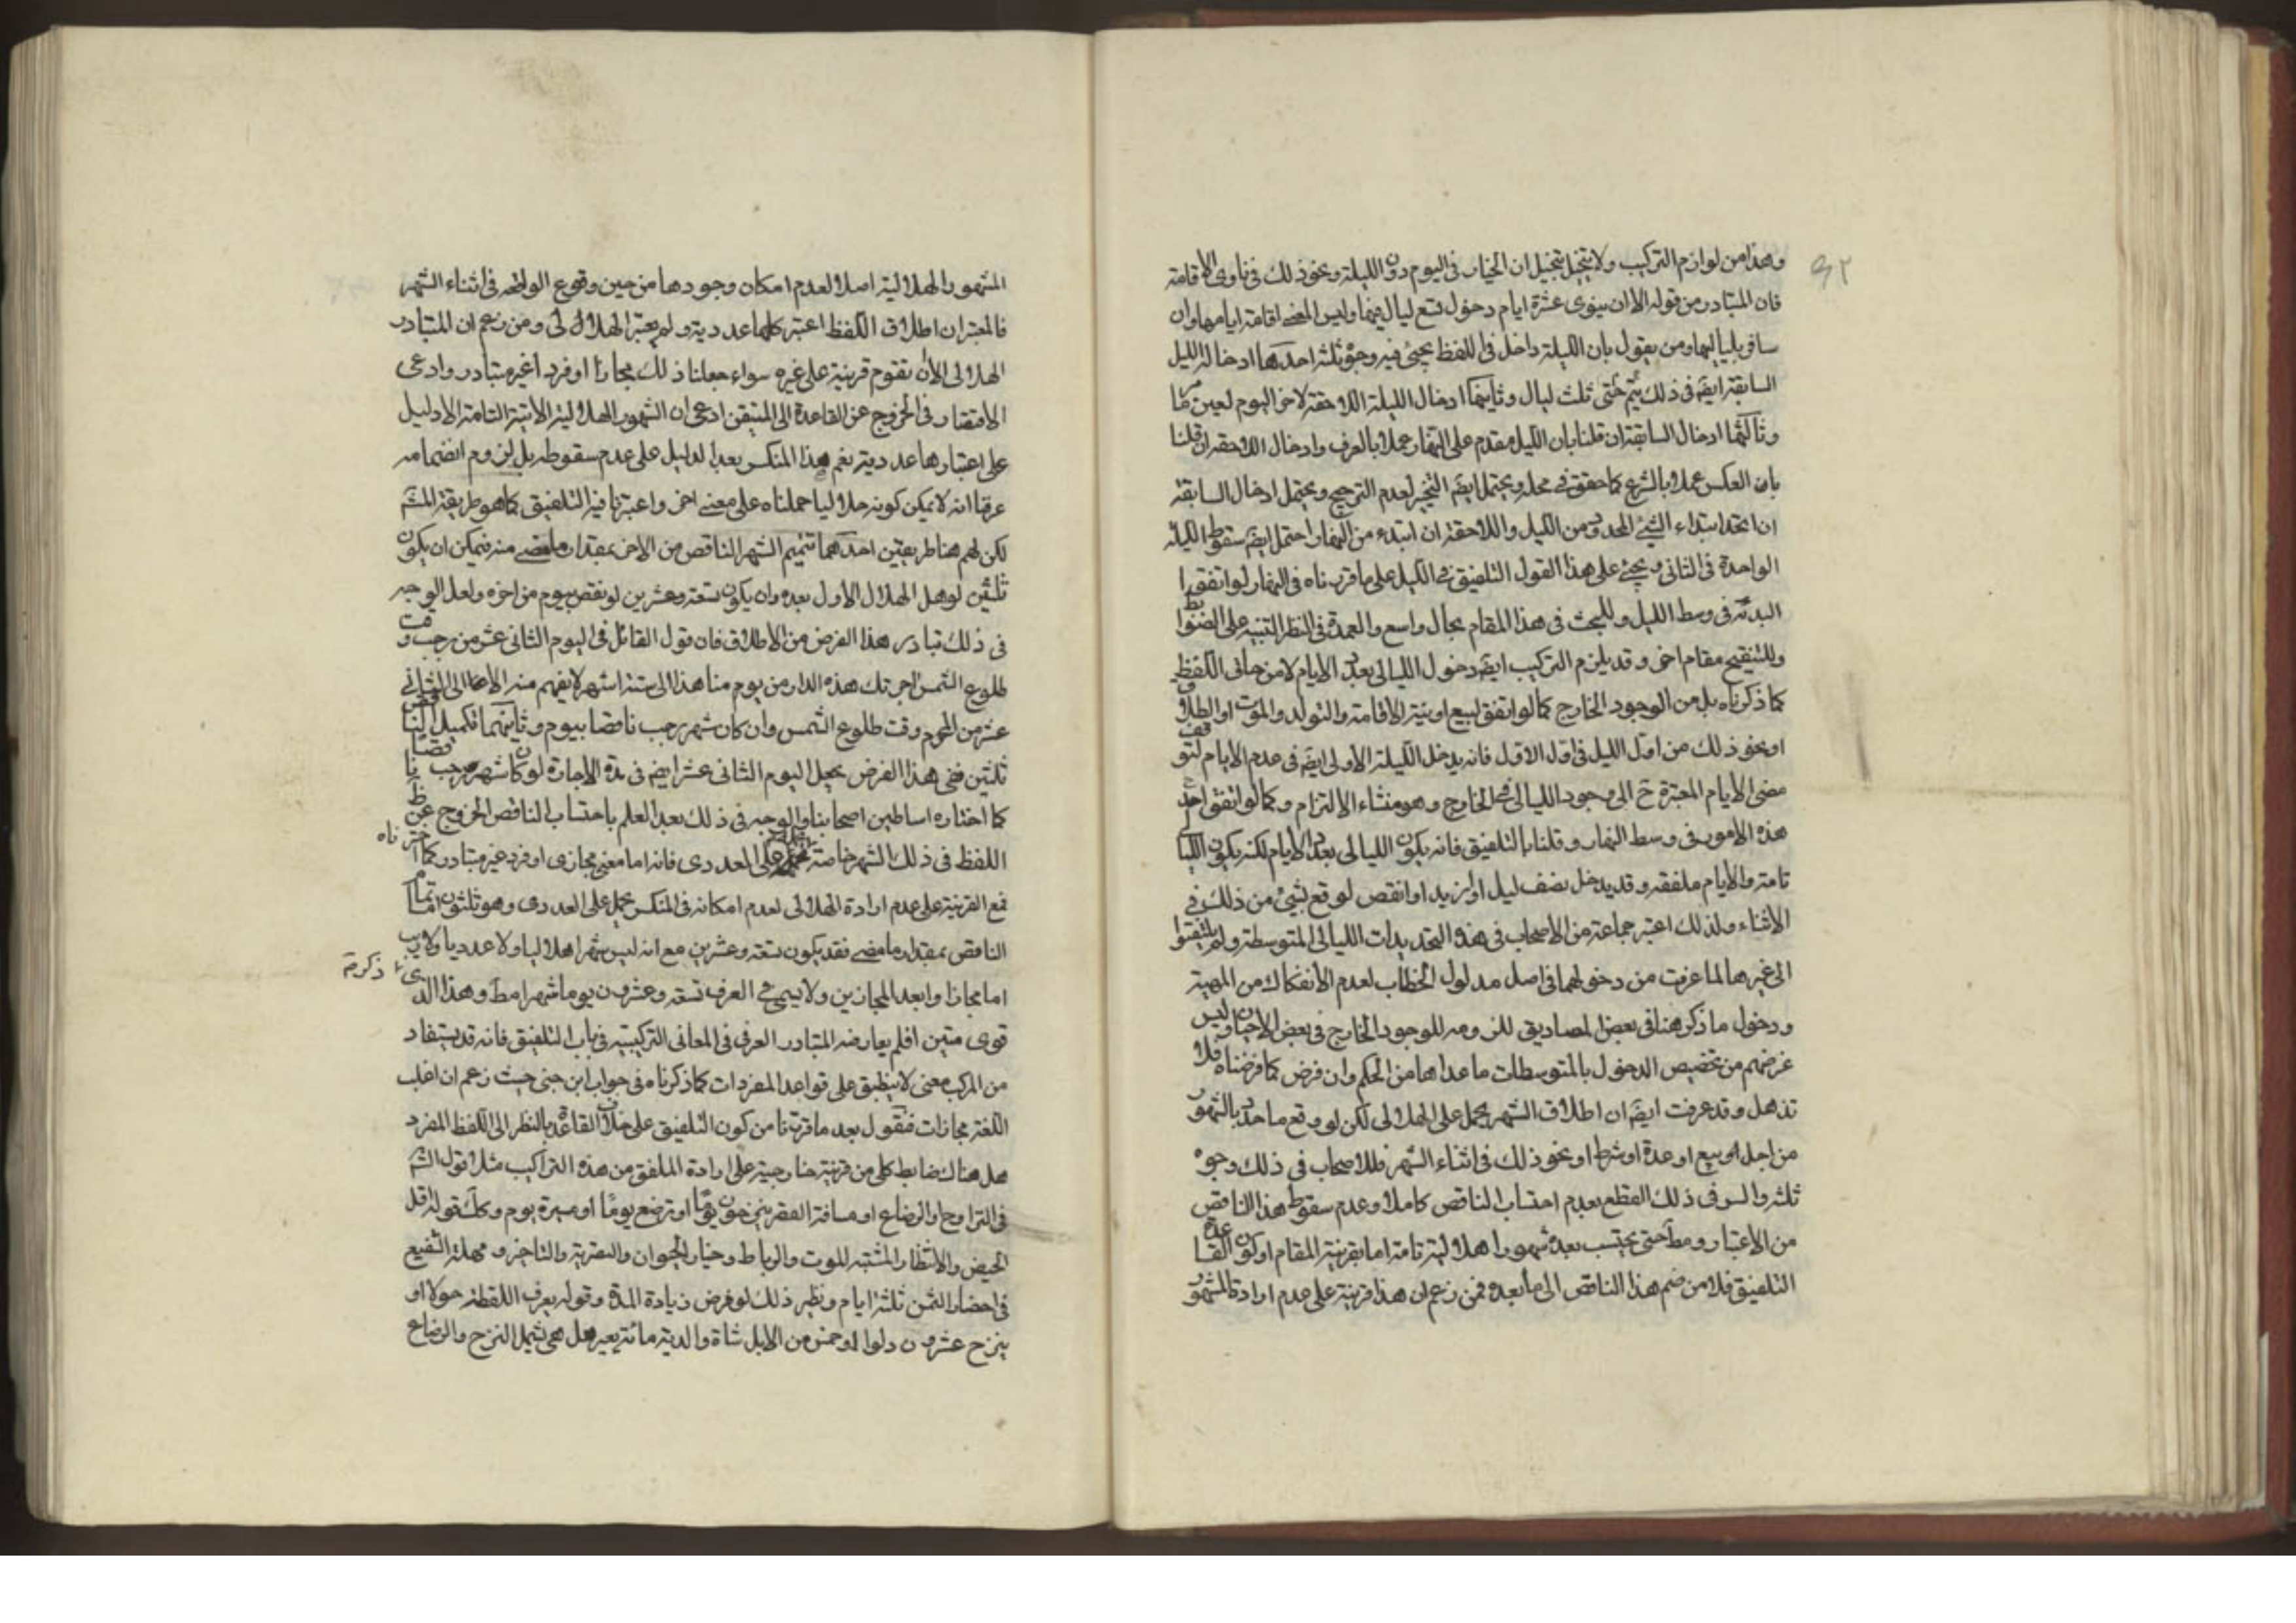 ۹۲
وهذا من لوازم التركيب ولا يتخيل بتخيل ان الخيار في اليوم دون الليلة ونحو ذلك في ناوي الاقامة
فان المتبادر من قوله الا ان ينوى عشرة ايام دخول تسع ليال فيها وليس المعنى اقامة ايامها وان
سافر بلياليها ومن يقول بان الليلة داخل في اللفظ يجئ فيه وجوه ثلثة احدها ادخاله الليل
السابقة ايضا في ذلك يتم حتى ثلث ليال وثانيها ادخال الليلة اللاحقة لاخر اليوم لعين ما مر
وثالثها ادخال السابقة ان قلنا بان الليل مقدم على النهار عملا بالعرف وادخال اللاحقة ان قلنا
بان العكس عملا بالشرع كما حقق في محله ويحتمل ايضا التخيير لعدم الترجيح ويحتمل ادخال السابقة
ان اتحد ابتداء الشئ المحدود من الليل واللاحقة ان ابتدء من النهار واحتمل ايضا سقوط الليلة
الواحدة في الثاني ويجئ على هذا القول التلفيق في الليل على ما قررناه في النهار لو اتفق
البدئة في وسط الليل وللبحث في هذا المقام مجال واسع والعمدة في النظر التنبيه على الضوابط
وللتنقيح مقام اخر وقد يلزم التركيب ايضا دخول الليالي بعدد الايام لا من حاق اللفظ
كما ذكرناه بل من الوجود الخارج كما لو اتفق البيع او نية الاقامة والتولد والموت او الطلاق
او نحو ذلك من اول الليل في اول الاول فانه يدخل الليلة الاولى ايضا في عدم الايام لتوقف
مضى الايام المعتبرة ح الى وجود الليالي في الخارج وهو منشاء الالتزام وكما لو اتفق احد
هذه الامور في وسط النهار وقلنا بالتلفيق فانه يكون الليالي بعدد الايام لكنه يكون الليالي
تامة والايام ملفقة وقد يدخل نصف ليل او ازيد او انقص لو وقع بشئ من ذلك في
الاثناء ولذلك اعتبر جماعة من الاصحاب في هذه التحديدات الليالي المتوسطة ولم يلتفتوا
الى غيرها لما عرفت من دخولهما في اصل مدلول الخطاب لعدم الانفكاك من المهية
ودخول ما ذكر هنا في بعض المصاديق للزومه للوجود الخارج في بعض الاحيان وليس
غرضهم من تخصيص الدخول بالمتوسطات ما عداها من الحكم وان فرض كما فرضناه فلا
تذهل وقد عرفت ايضا ان اطلاق الشهر يحمل على الهلالي لكن لو وقع ما حدد بالشهور
من اجل او بيع او عدة او شرط او نحو ذلك في اثناء الشهر فللاصحاب في ذلك وجوه
ثلثة والسر في ذلك القطع بعدم احتساب الناقص كاملا وعدم سقوط هذا الناقص
من الاعتبار ومط حتى يحتسب بعده شهورا هلالية تامة اما بقرينة المقام او لكون القاعدة
التلفيق فلا من ضم هذا الناقص الى ما بعده فمن زعم ان هذا قرينة على عدم ارادة المشهور
المشهور الهلالية اصلا لعدم امكان وجودها من حين وقوع الواقعة في اثناء الشهر
فالمعتبر ان اطلاق اللفظ اعتبر كلها عددية ولم يعتبر الهلال لى ومن زعم ان المتبادر
الهلالى الا ان تقوم قرينة على غيره سواء جعلنا ذلك مجازا او فردا غير متبادر وادعى
الافتقار في الخروج عن القاعدة الى المتيقن ادعى ان الشهور الهلالية الاتية التامة لا دليل
على اعتبارها عددية نعم هذا المنكسر بعد الدليل على عدم سقوطه بل لزوم انضمامه
عرفنا انه لا يمكن كونه هلاليا حملناه على معنى اخر واعتبرنا فيه التلفيق كما هو طريقة المش
لكن لهم هنا طريقين احدهما تتميم الشهر الناقص من الاخر بمقدار ما مضى منه فيمكن ان يكون
ثلثين لو هل الهلال الاول بعده وان يكون تسعة وعشرين لو نقص بيوم من اخره ولعل الوجه
في ذلك تبادر هذا الفرض من الاطلاق فان قول القائل في اليوم الثاني عشر من رجب وقت
طلوع الشمس اجرتك هذه الدار من يوم منا هذا الى ستة اشهر لا يفهم منه الا عما الى الثاني
عشر من المحرم وقت طلوع الشمس وان كان شهر رجب ناقصا بيوم وثانيهما تكميل الناقص
ثلثين ففي هذا الفرض يجعل اليوم الثاني عشر ايضا في مدة الاجارة لو كان شهر رجب ناقصا
كما اختاره اساطين اصحابنا والوجه في ذلك بعد العلم باحتساب الناقص الخروج عن ظ
اللفظ في ذلك الشهر خاصة على العددى فانه اما معنى مجازى او فرد غير متبادر كما اخترناه
فمع القرينة على عدم ارادة الهلالي لعدم امكانه في المنكسر يحمل على العددى وهو ثلثون اما تمام
الناقص بمقدار ما مضى فقد يكون تسعة وعشرين مع انه ليس شهرا هلاليا ولا عدديا ولا ريب
اما مجازا وابعد المجازين ولا يسمى في العرف تسعة وعشرون يوما شهرا مط وهذا الذى ذكرته
قوى متين ا فلم يعارضه المتبادر العرفي في المعاني التركيبية في باب التلفيق فانه قد يستفاد
من المركب معنى لا ينطبق على قواعد المفردات كما ذكرناه في جواب ابن جنى حيث زعم ان اغلب
اللغة مجازات فنقول بعد ما قررنا من كون التلفيق على خلاف القاعدة بالنظر الى اللفظ المفرد
هل هناك ضابط كلى من قرينة خارجية على ارادة الملفق من هذه التراكيب مثلا قول الش
في التراوح والرضاع او مسافة القصر ينزحون يوما او ترضع يوما او مسيرة يوم وكك قوله اقل
الحيض والانتظار المشتبه للموت والرباط وخيار الحيوان والتصرية والتاخير ومهلة الشفيع
في احضار الثمن ثلثة ايام ونظير ذلك لو فرض زيادة المدة وقوله يعرف اللقطة حولا او
ينزح عشرون دلوا او خمس من الابل شاة والدية مائة بعير هل هي تشمل النزح والرضاع